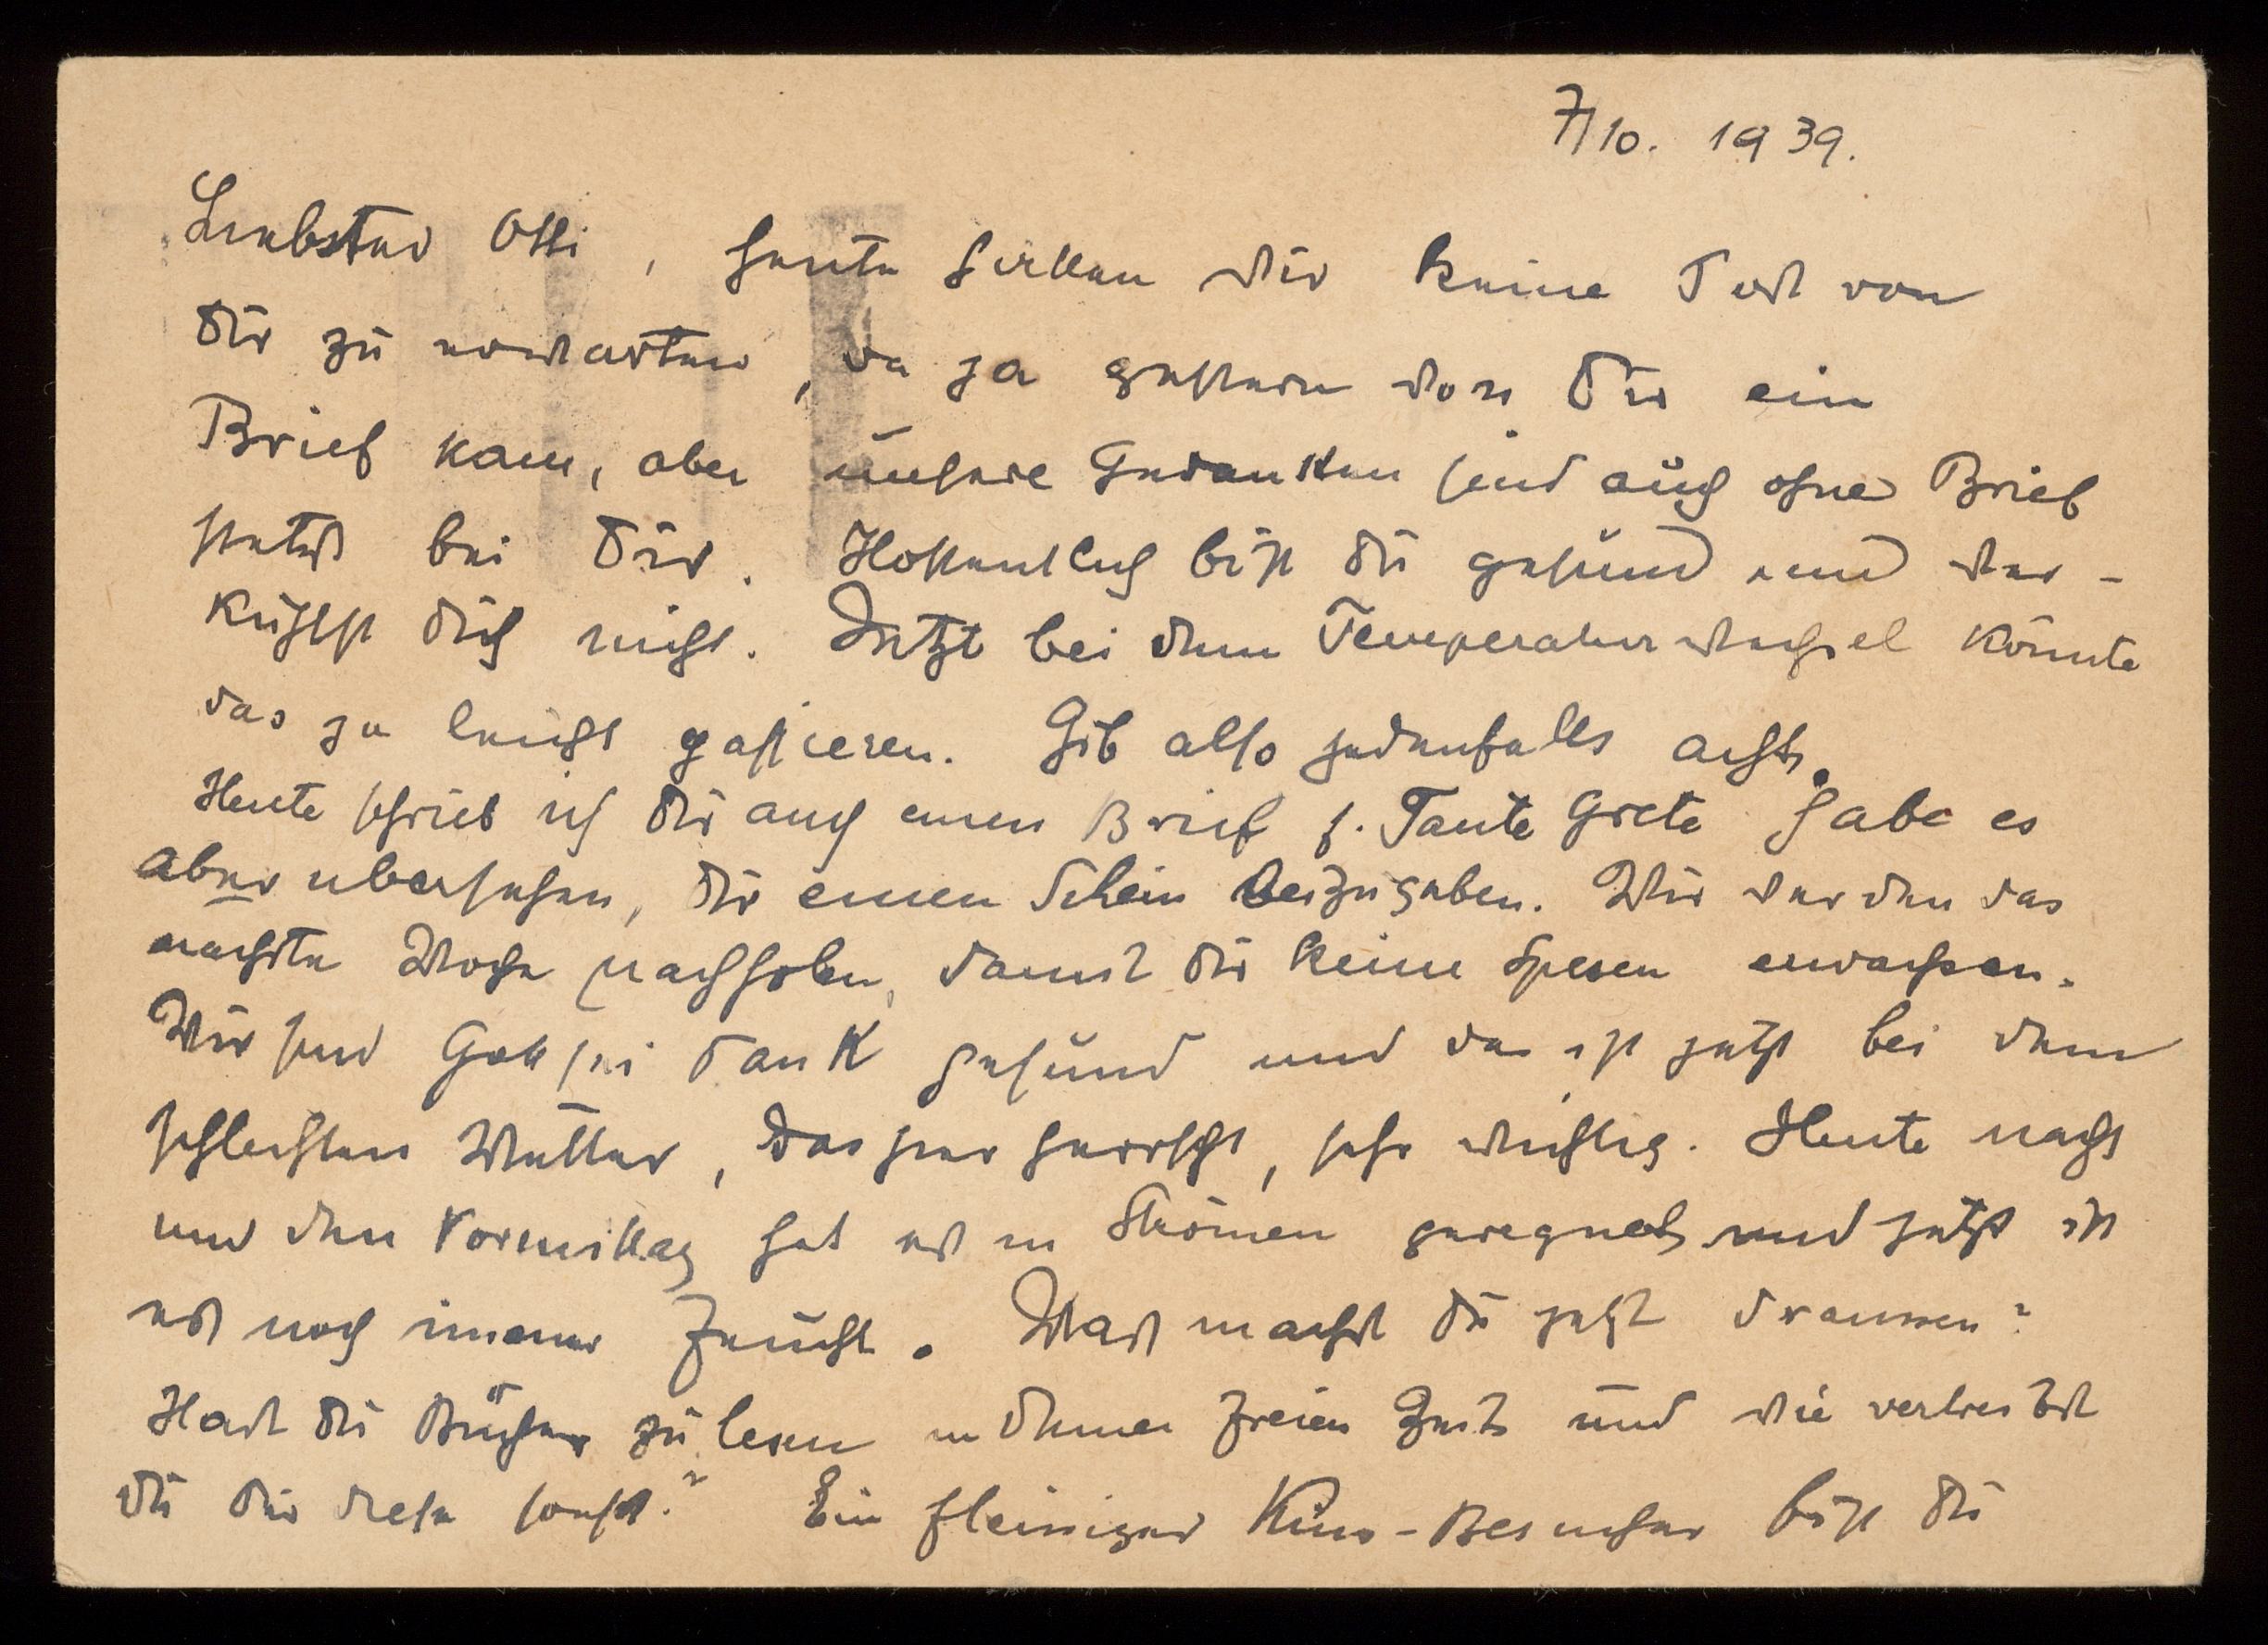 7/10. 1939.
Liebster Otti, heute hatten wir keine Post von
Dir zu erwarten, da ja gestern von Dir ein
Brief kam, aber unsere Gedanken sind auch ohne Brief
stets bei Dir. Hoffentlich bist Du gesund und ver-
kühlst Dich nicht. Jetzt bei dem Temperaturwechsel könnte
das ja leicht passieren. Gib also jedenfalls acht.
Heute schrieb ich Dir auch einen Brief f. Tante Grete habe es
aber übersehen, Dir einen Schein beizugeben. Wir werden das
nächste Woche nachholen, damit Dir keine Spesen erwachsen.
Wir sind Gott sei Dank gesund und das ist jetzt bei dem
schlechten Wetter, das hier herrscht, sehr wichtig. Heute nacht
und den Vormittag hat es in Strömen geregnet und jetzt ist
es noch immer feucht. Was machst Du jetzt draussen?
Hast Du Bücher zu lesen in Deiner freien Zeit und wie vertreibst
Du Dir diese sonst? Ein fleissiger Kino-Besucher bist Du